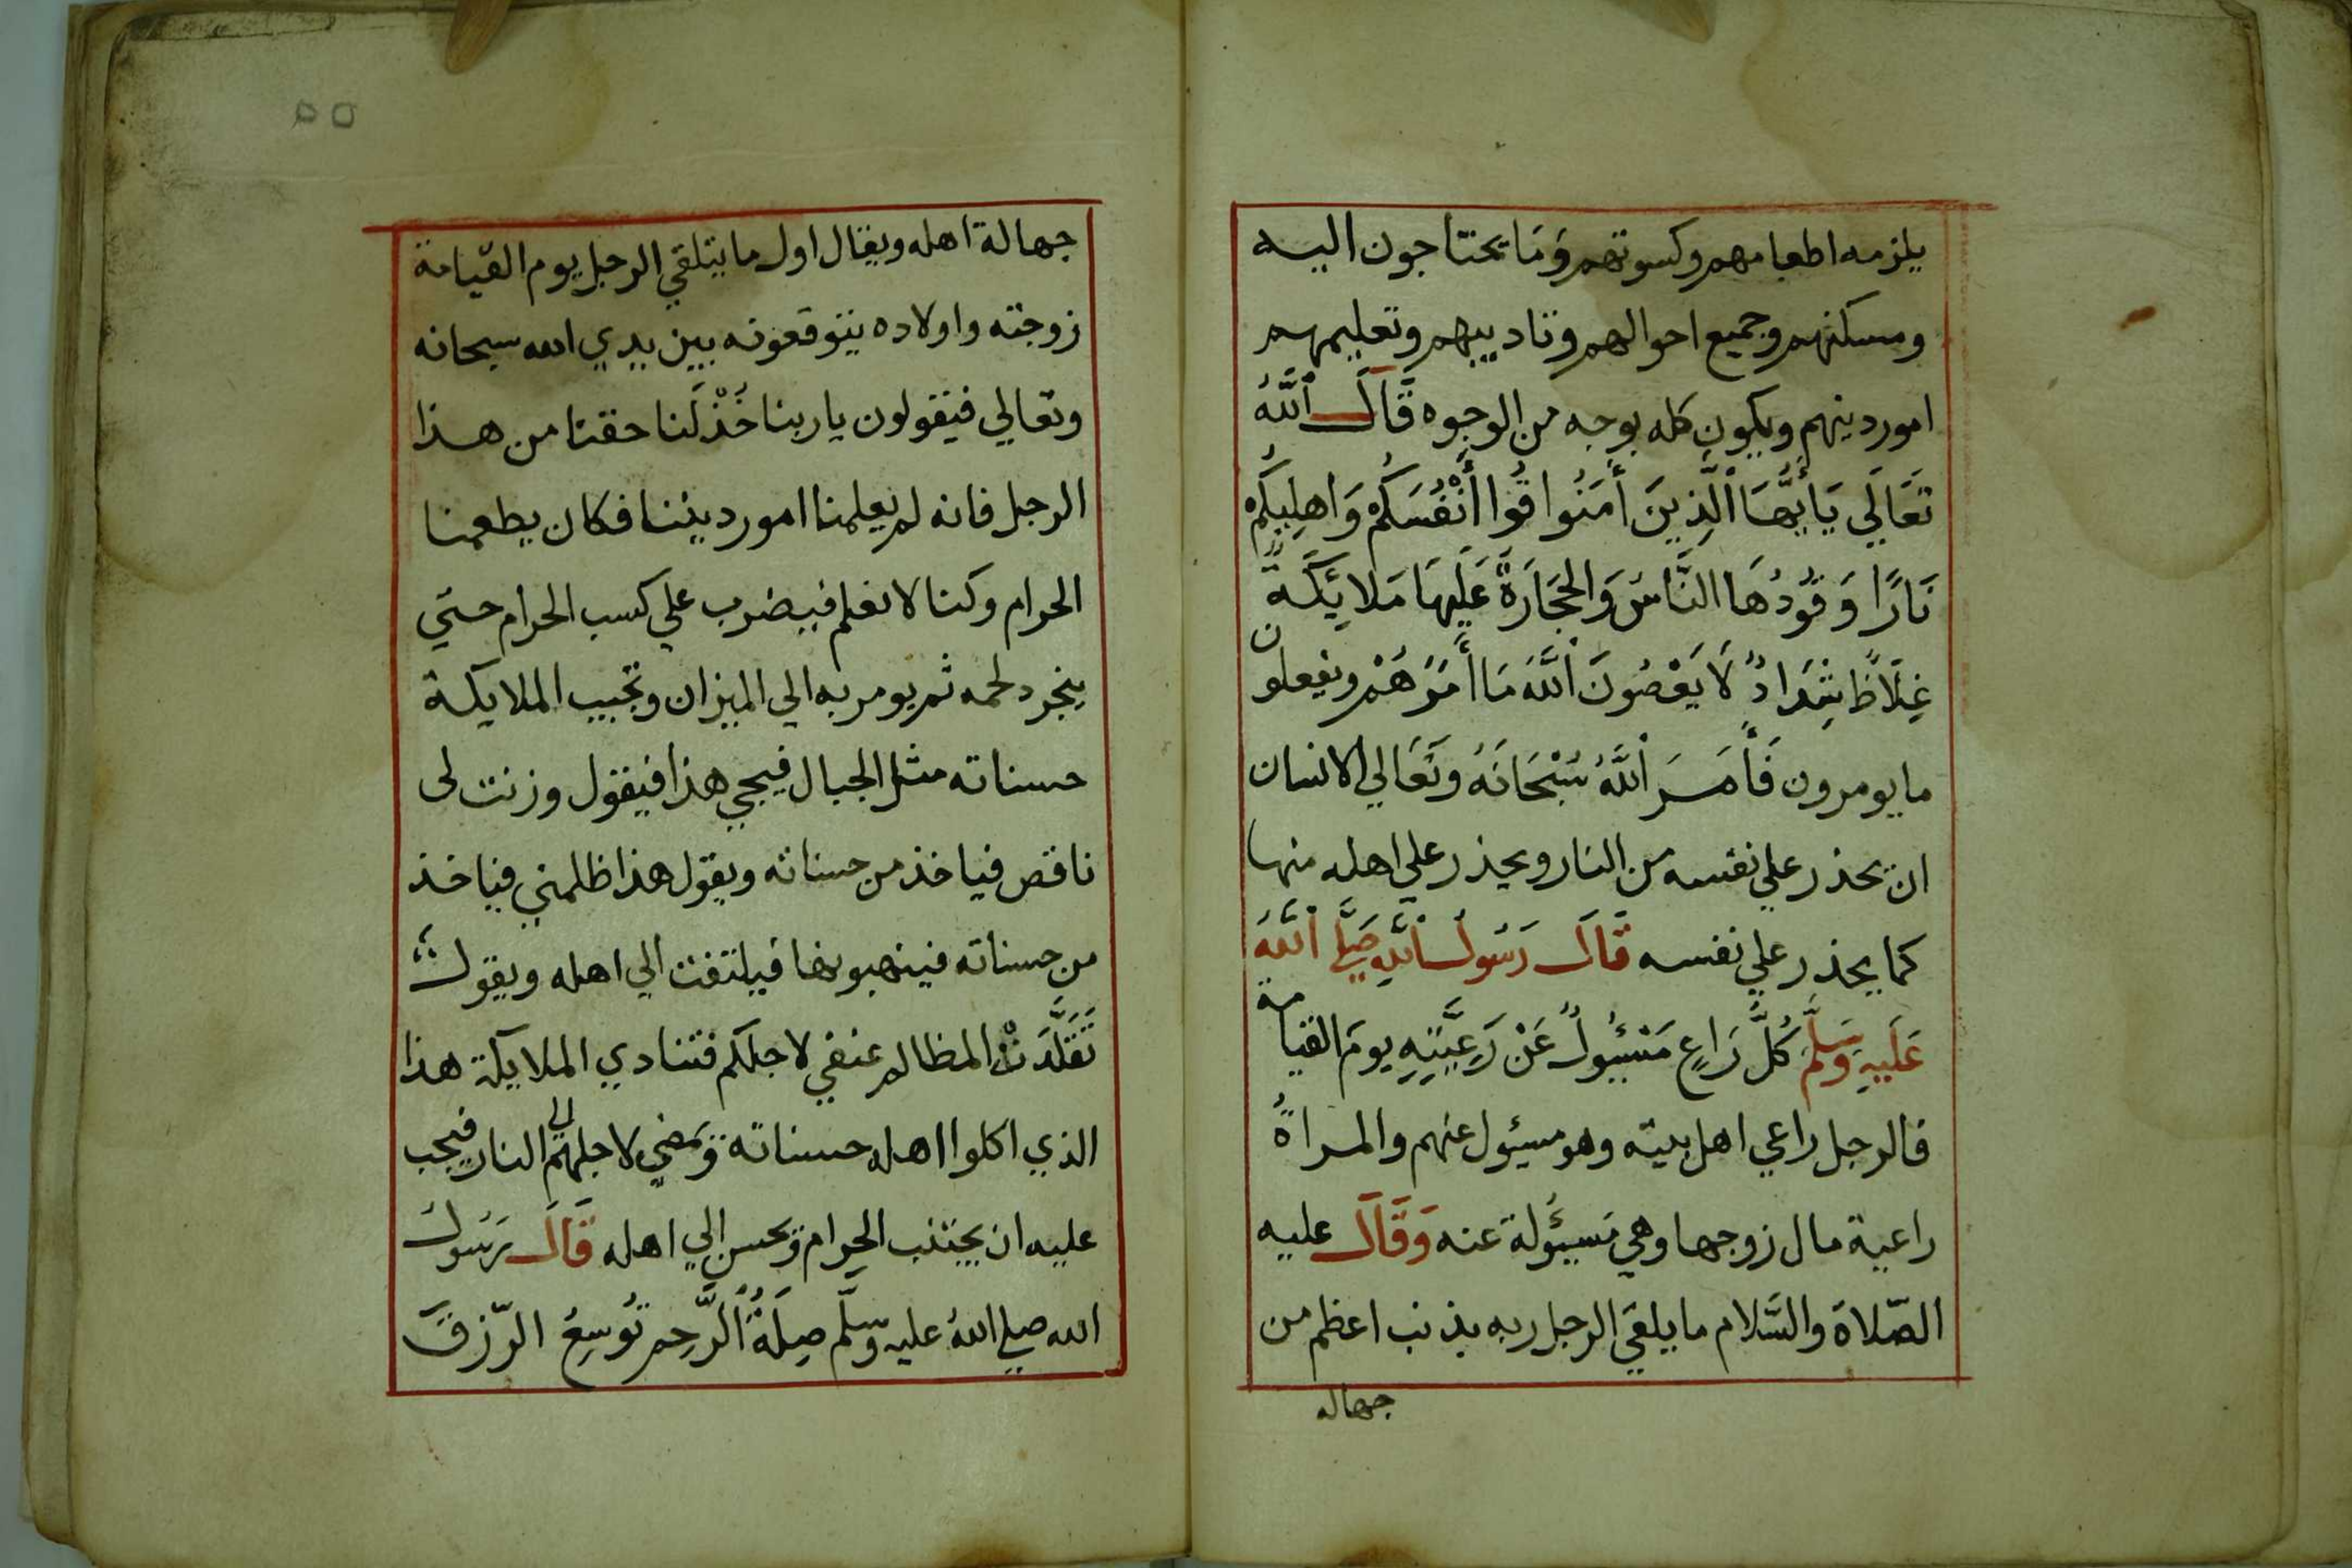 يلزمه اطعامهم وكسوتهم وَمَا يحتاجون اليه
ومسكنهم وجميع احوالهم وتاديبهم وتعليمهم
امور دينهم ويكون كله بوجه من الوجوه قَالَ اللَّهُ
تَعَالَي يَاأَيُّهَا الَّذِينَ أَمَنُوا قُوا أَنْفُسَكُمْ وَاهلِيكُمْ
نَارًا وَقُودُهَا النَّاسُ وَالحِجَارَةُ عَلَيهَا مَلائِكَةٌ
غِلَاظٌ شِدَادٌ لَا يَعْصُونَ اللَّهَ مَا أَمَرَهُمْ ويفعلون
ما يومرون فَأَمَرَ اللَّهُ سُبْحَانَهُ وَتَعَالي الانسان
ان يحذر علي نفسه من النار ويحذر علي اهله منها
كما يحذر علي نفسه قَالَ رَسُولُ اللَّهِ صَلَّي اللَّهُ
عَلَيهِ وَسَلَّمَ كُلُّ رَاعٍ مَسْئُولٌ عَنْ رَعِيَّتِهِ يومَ القيامة
فالرجل راعي اهل بيته وهو مسئول عنهم والمراةُ
راعية مال زوجها وهي مَسئُولة عنه وَقَالَ عليه
الصّلاة والسَّلام ما يلقَي الرجل ربه بذنب اعظم من
جهاله
٥٥
جهالة اهله ويقال اول ما يتلقي الرجل يوم القيامة
زوجته واولاده يتوقعونه بين يدي الله سبحانه
وتعالي فيقولون ياربنا خُذْ لَنا حقنا من هذا
الرجل فانه لم يعلمنا امور ديننا فكان يطعمنا
الحرام وكنا لا نعلم فيضرب علي كسب الحرام حتي
ينجرد لحمه ثم يومر به الي الميزان وتجيب الملايكة
حسناته مثل الجبال فيجي هذا فيقول وزنت لى
ناقص فياخذ من حسناته ويقول هذا ظلمني فياخذ
من حسناته فينهبونها فيلتفت الي اهله ويقول
تَقَلَّدَتْ المظالم عنقي لاجلكم فتنادي الملايكة هذا
الذي اكلوا اهله حسناته وَمَضي لاجلهم الي النار فيجب
عليه ان يجتنب الحرام وَيحسن الي اهله قَالَ رَسُولُ
الله صلي اللهُ عليه وسلّم صِلَةُ الرَّحِم تُوسِعُ الرّزقَ